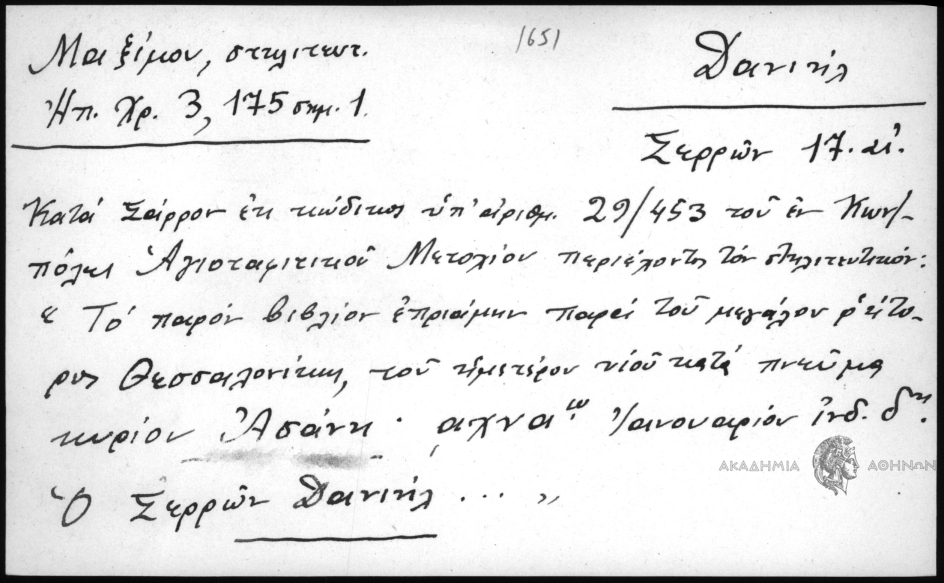 1651
Μαξίμου, στηλιτευτ.
Ἠπ. Χρ. 3, 175 σημ. 1.
Δανιήλ
Σερρῶν 17. αἰ.
Κατά Σάρρον ἐκ κώδικος ὑπ' ἀριθμ. 29/453 τοῦ ἐν Κων/-
πόλει Ἁγιοταφιτικοῦ Μετοχίου περιέχοντος τόν στηλιτευτικόν:
« Τό παρόν βιβλίον ἐπριάμην παρά τοῦ μεγάλου ῥήτο-
ρος Θεσσαλονίκης, τοῦ ἡμετέρου υἱοῦ κατά πνεῦμα
κυρίου Ἀσάνη. αχνα ͭͩ Ἰαννουαρίου ἰνδ. δης.
Ὁ Σερρῶν Δανιήλ ... »
ΑΚΑΔΗΜΙΑ ΑΘΗΝΩΝ